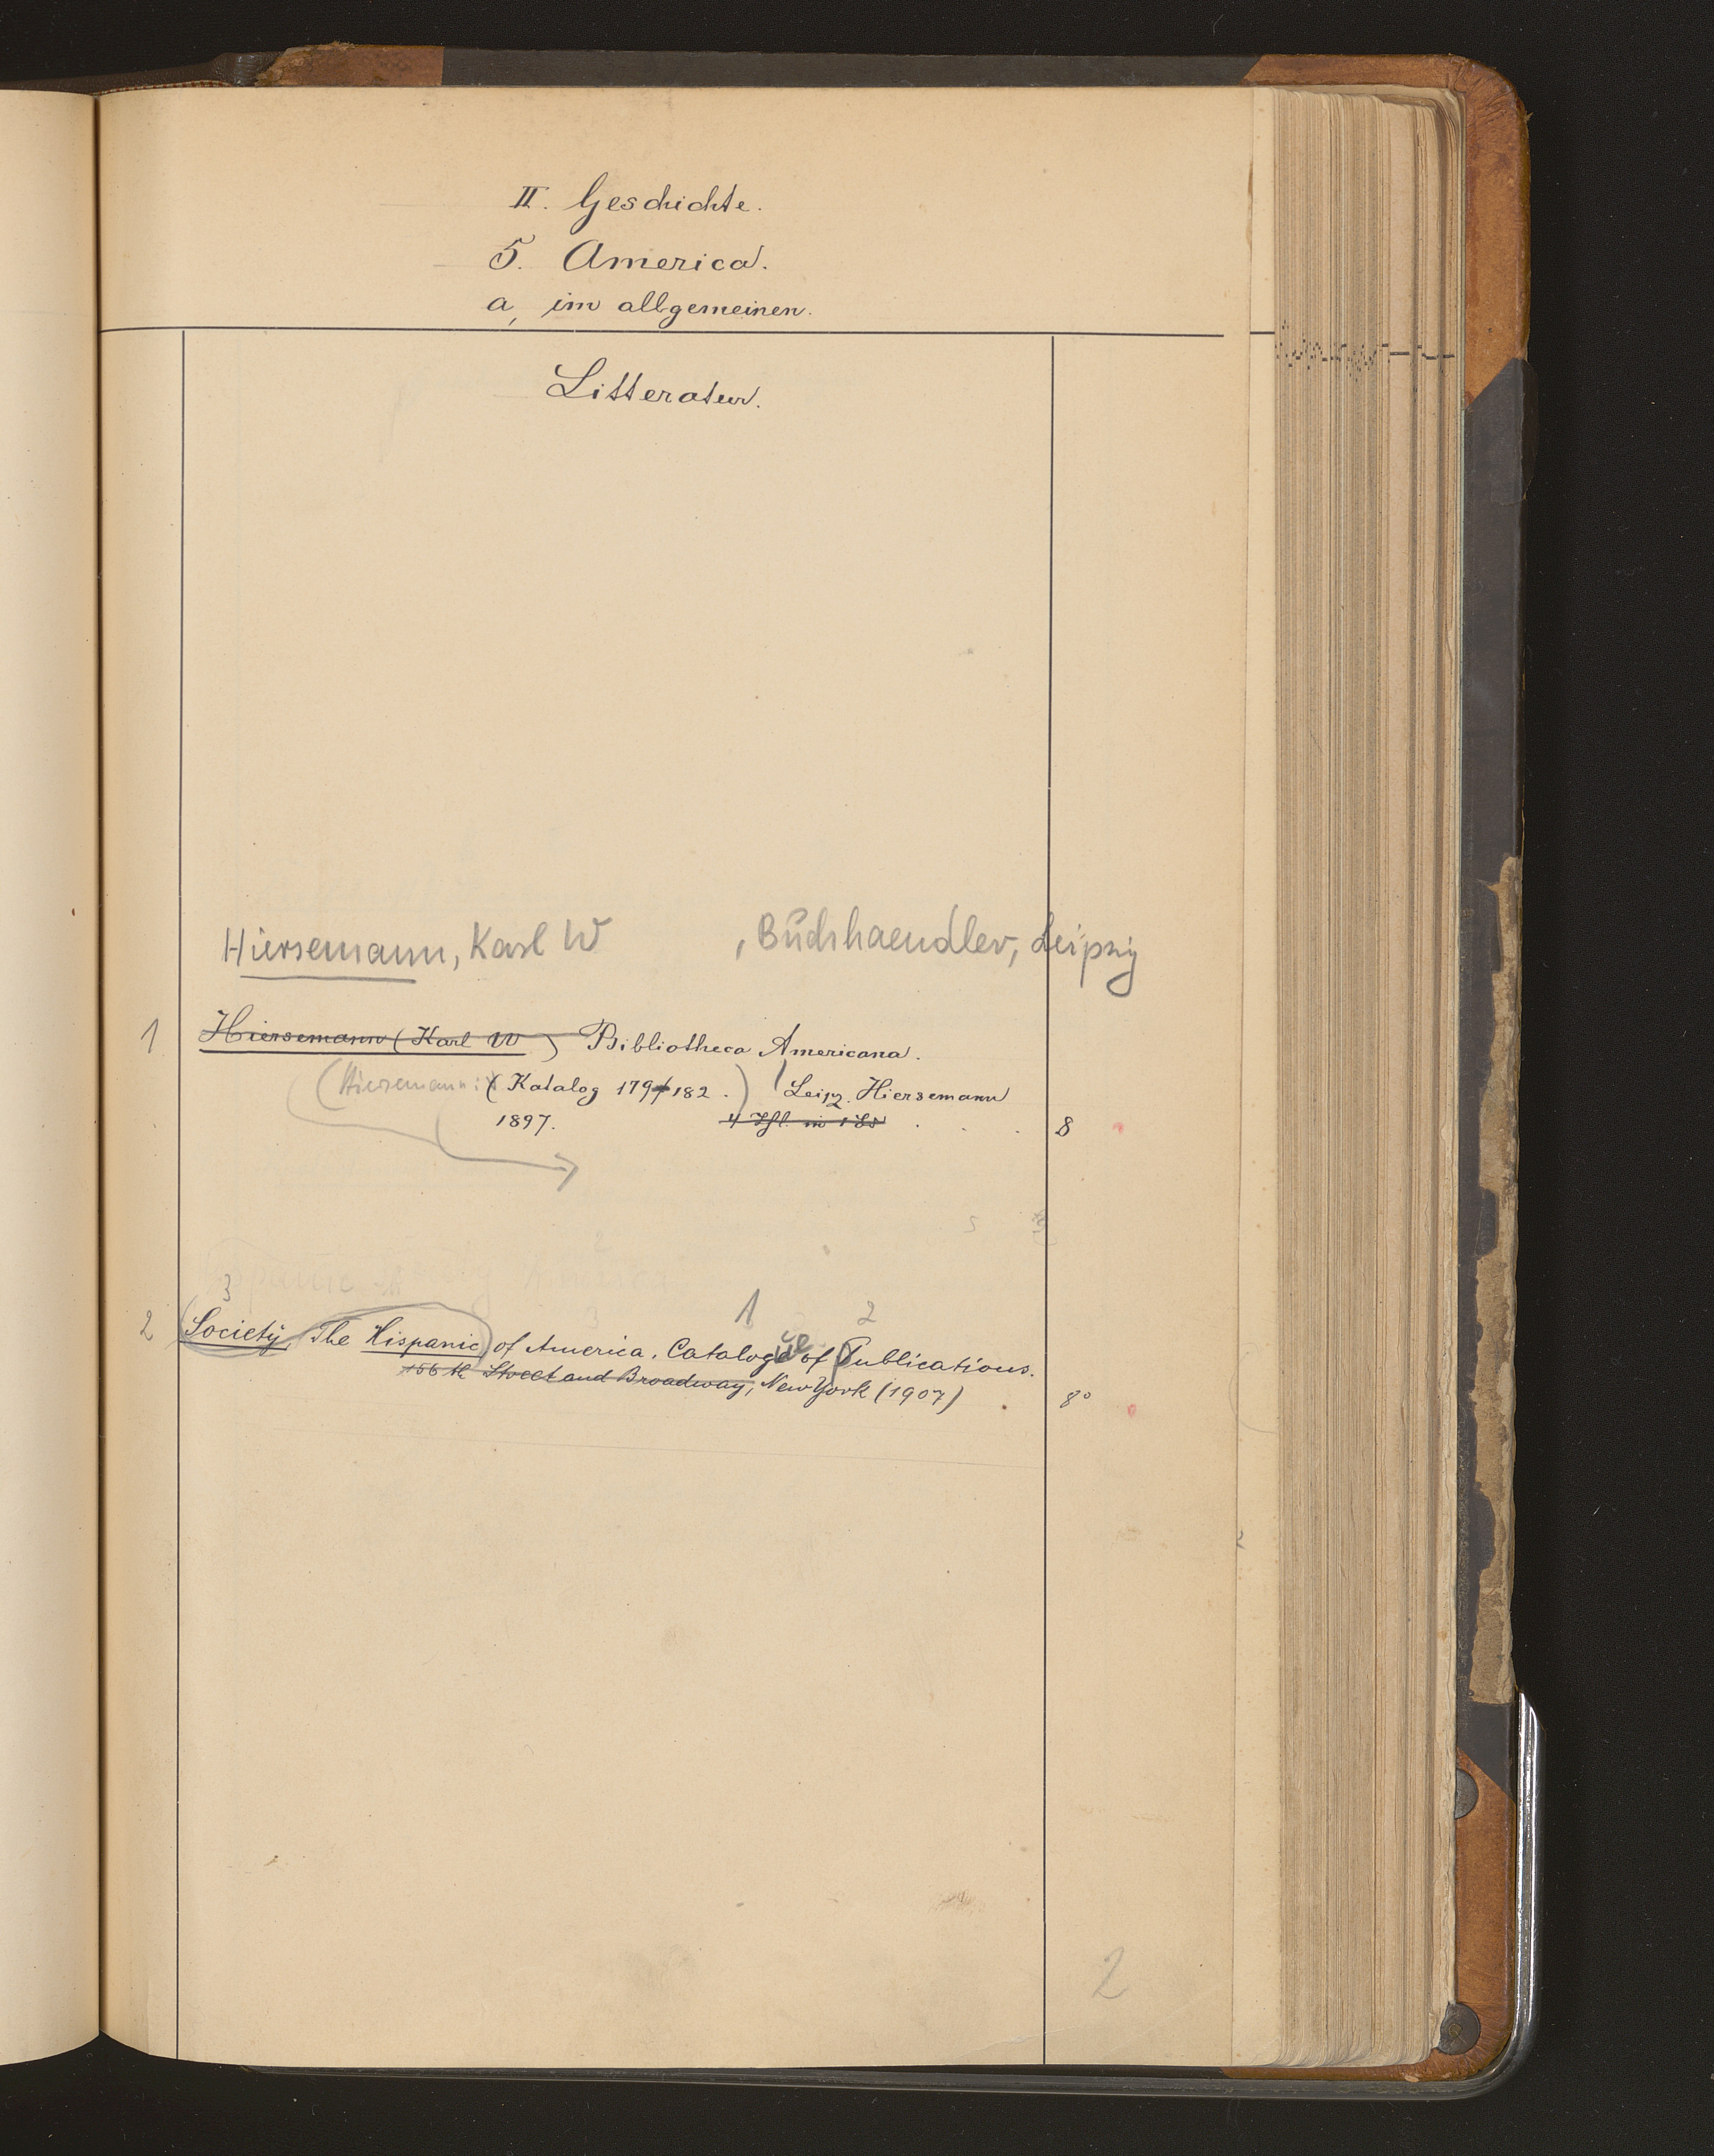 II. Geschichte.
5. America.
a, im allgemeinen.
Litteratur.
Hiersemann, Karl W , Buchhaendler, Leipzig
1 Hiersemann (Karl W ) Bibliotheca Americana.
(Hiersemann: ( Katalog 179/182 . ) Leipz. Hiersemann
1897. 4 Thl. in 1 Bd . . . 8
3 1 2
2 Society, The Hispanic of America. Catalogue of Publications.
156 th Street and Broadway, New York (1907) . 8°
2